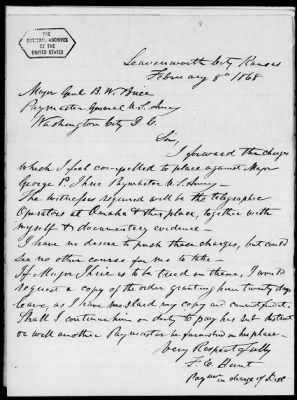 THE
NATIONAL ARCHIVES
OF THE
UNITED STATES
Leavenworth City Kansas
February 8th 1868
Major Genl B. W. Brice
Paymaster General U.S. Army
Washington City D.C.
Sir,
I forward the charges
which I feel compelled to place against Major
George P. Ihrie Paymaster U.S. Army –
The witnesses required will be the telegraphic
Operators at Omaha & this place, together with
myself & documentary evidence –
I have no desire to push these charges, but could
see no other course for me to take –
If Major Ihrie is to be tried on them, I would
request a copy of the order granting him twenty days
leave, as I have mislaid my copy and
Shall I continue him on duty to pay his district
or will another Paymaster be furnished in his place –
Very Respectfully
F. E. Hunt
Paymr in charge of Dist